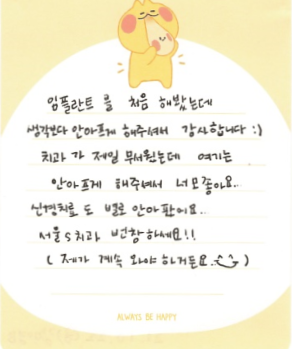 임플란트를 처음 해봤는데
생각보다 안아프게 해주셔서 감사합니다 :)
치과가 제일 무서웠는데 여기는
안아프게 해주셔서 너모좋아요..
신경치료도 별로 안아팠어요..
서울S치과 번창하세요!!
(제가 계속 와야 하거든요..)
ALWAYS BE HAPPY